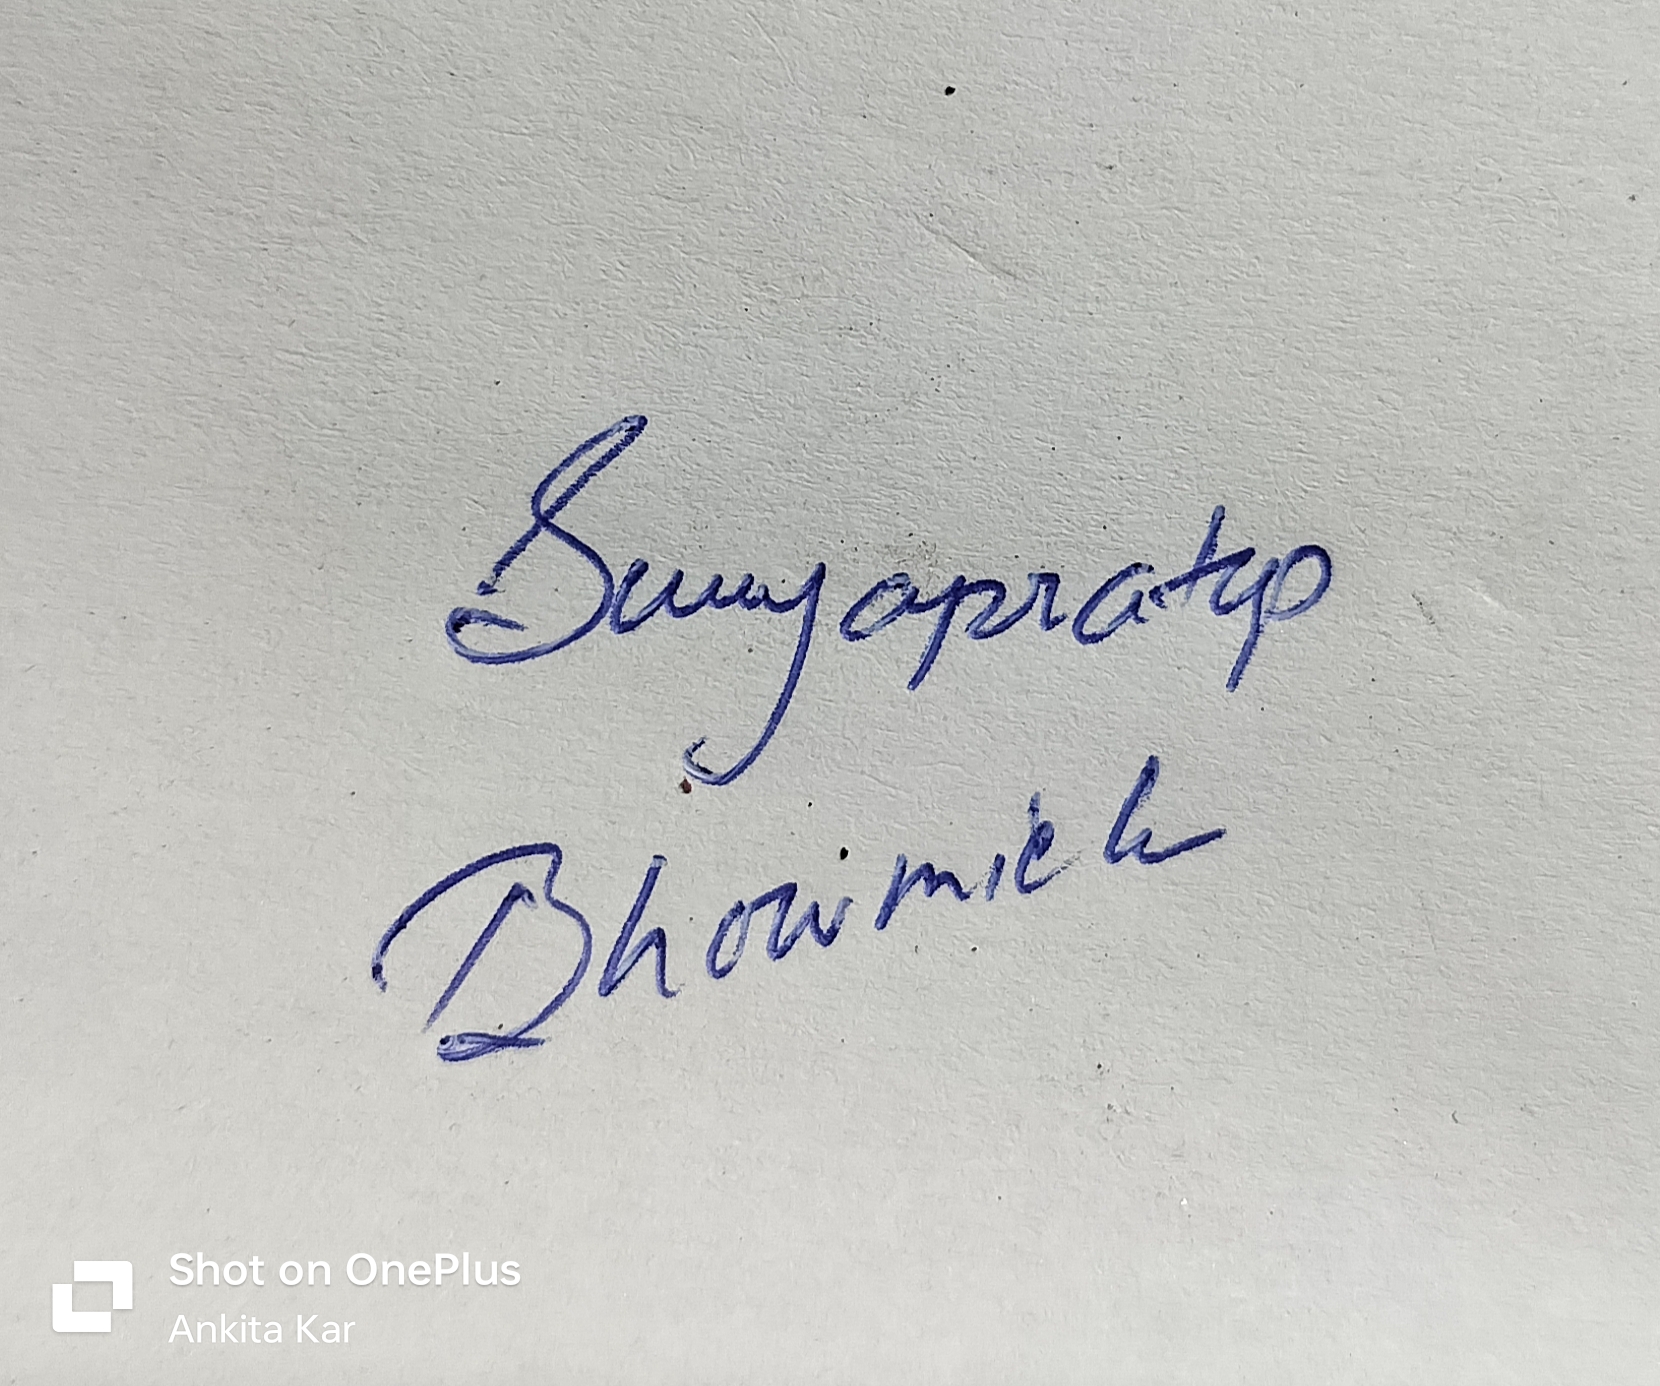 Suryapratap
Bhowmick
Shot on OnePlus
Ankita Kar